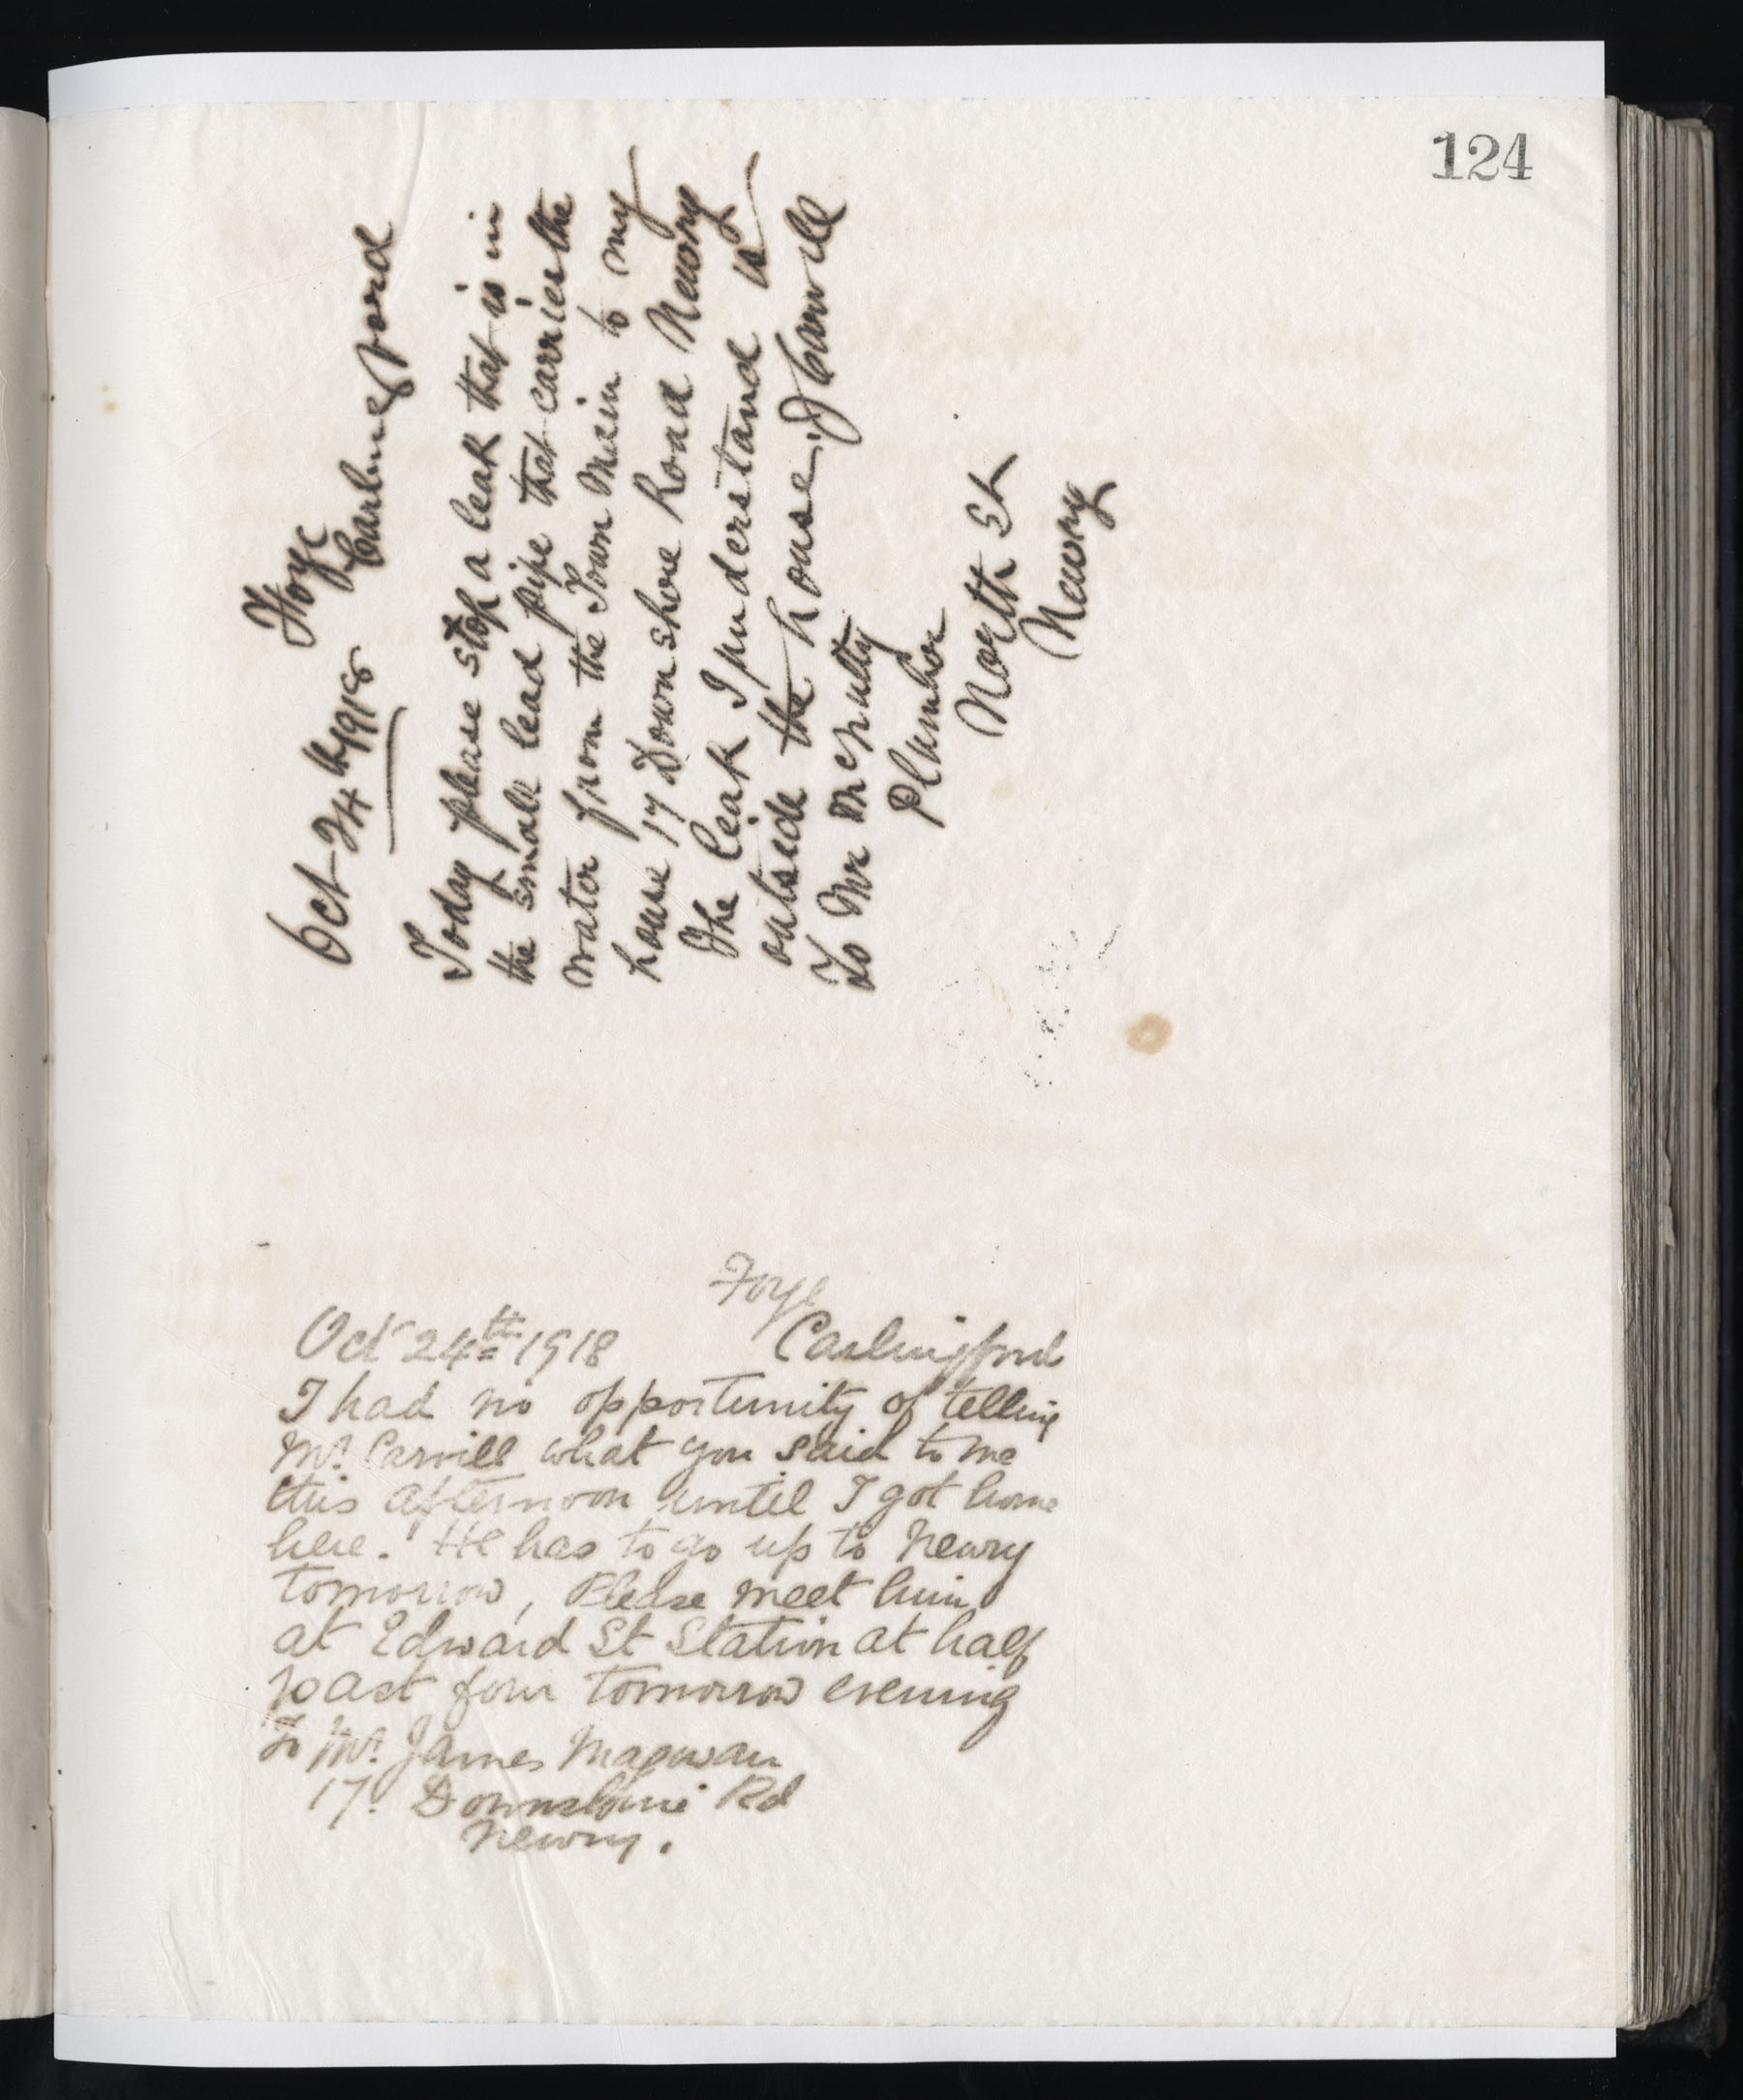 124
Foye
Oct 24th 1918 Carlingford
Today please stop a leak that is in
the small lead pipe that carries the
water from the Town Main to my
house 17 Downshire Road Newry
The leak I understand is
outside the house. J Carvill
To Mr McNulty
Plumbor
North St
Newry
Foye
Oct 24th 1918 Carlingford
I had no opportunity of telling
Mr. Carvill what you said to me
this afternoon until I got home
here. He has to go up to Newry
tomorrow, Please meet him
at Edward St Station at half
past four tomorrow evening
To Mr. James Magowan
17. Downshire Rd
Newry.